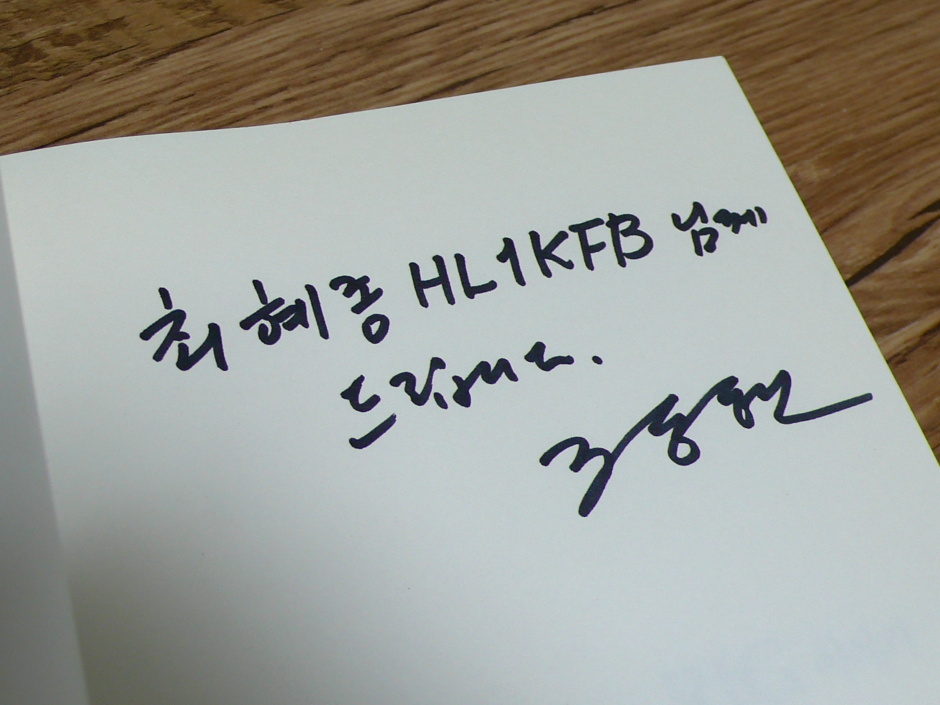 최혜종 HL1KFB 님께
드립니다.